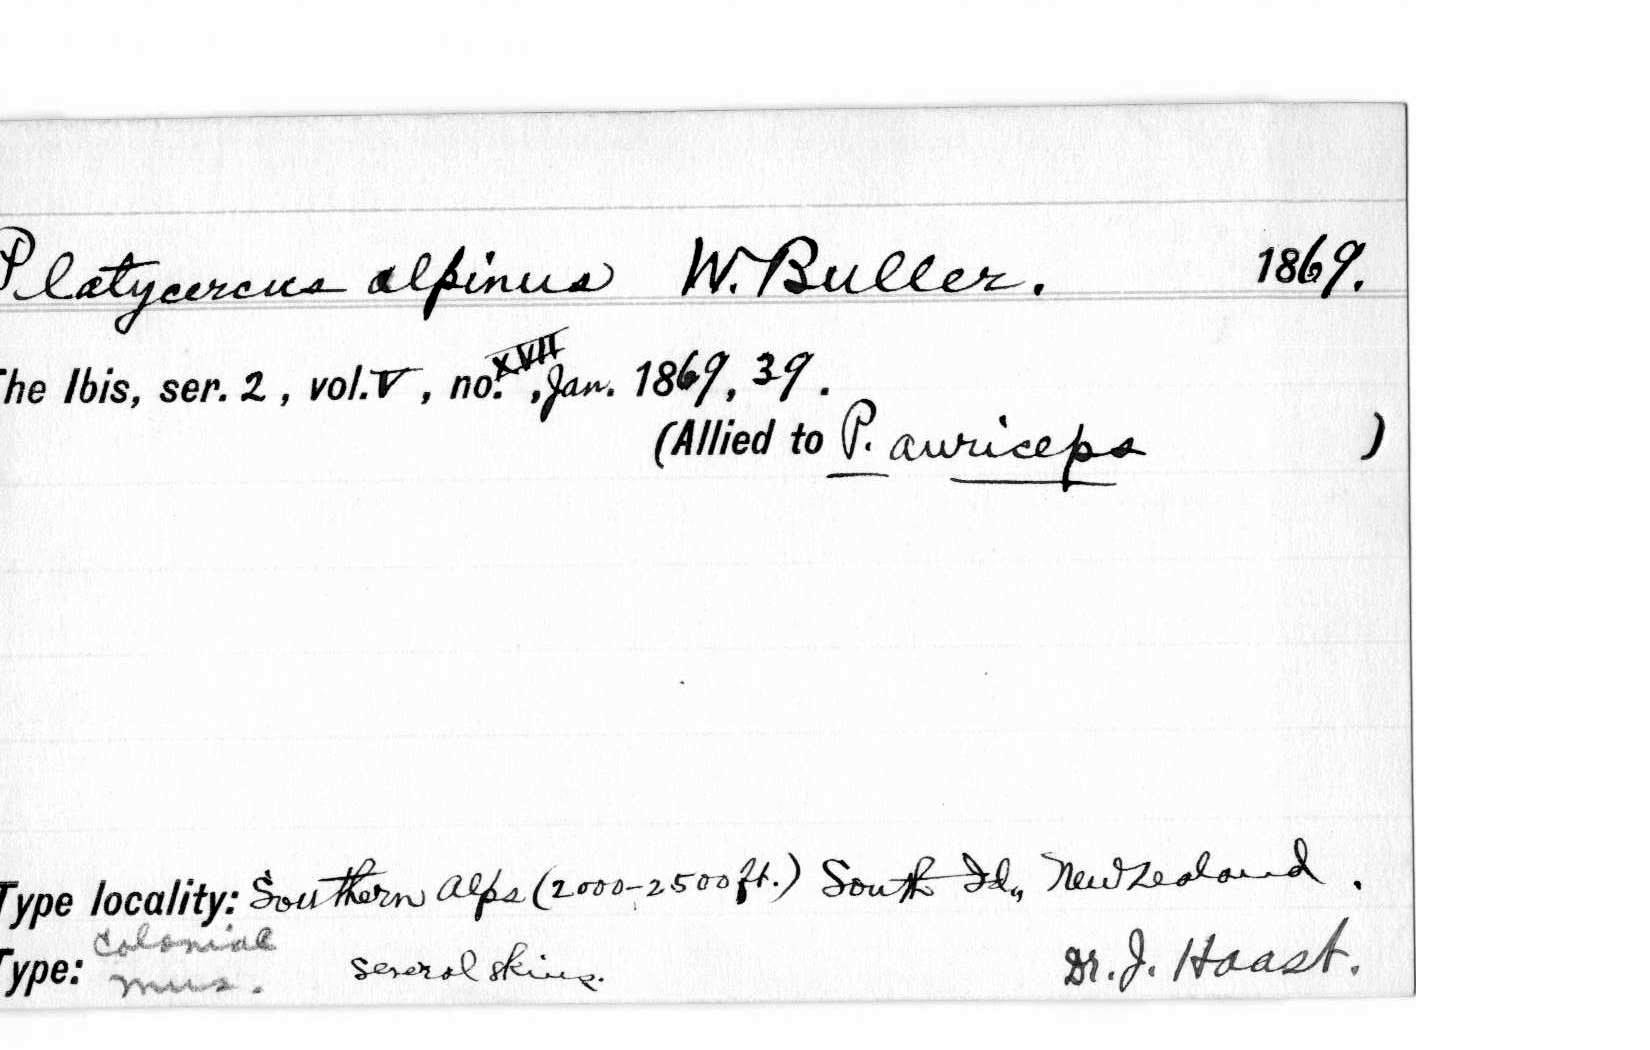 Platycercus alpinus W. Buller. 1869.
The Ibis, ser. 2, vol. V, no. XVII, Jan. 1869, 39.
(Allied to P. auriceps )
Type locality: Southern Alps (2000-2500 ft.) South Id., New Zealand.
Type: Colonial Mus. several skins. Dr. J. Haast.